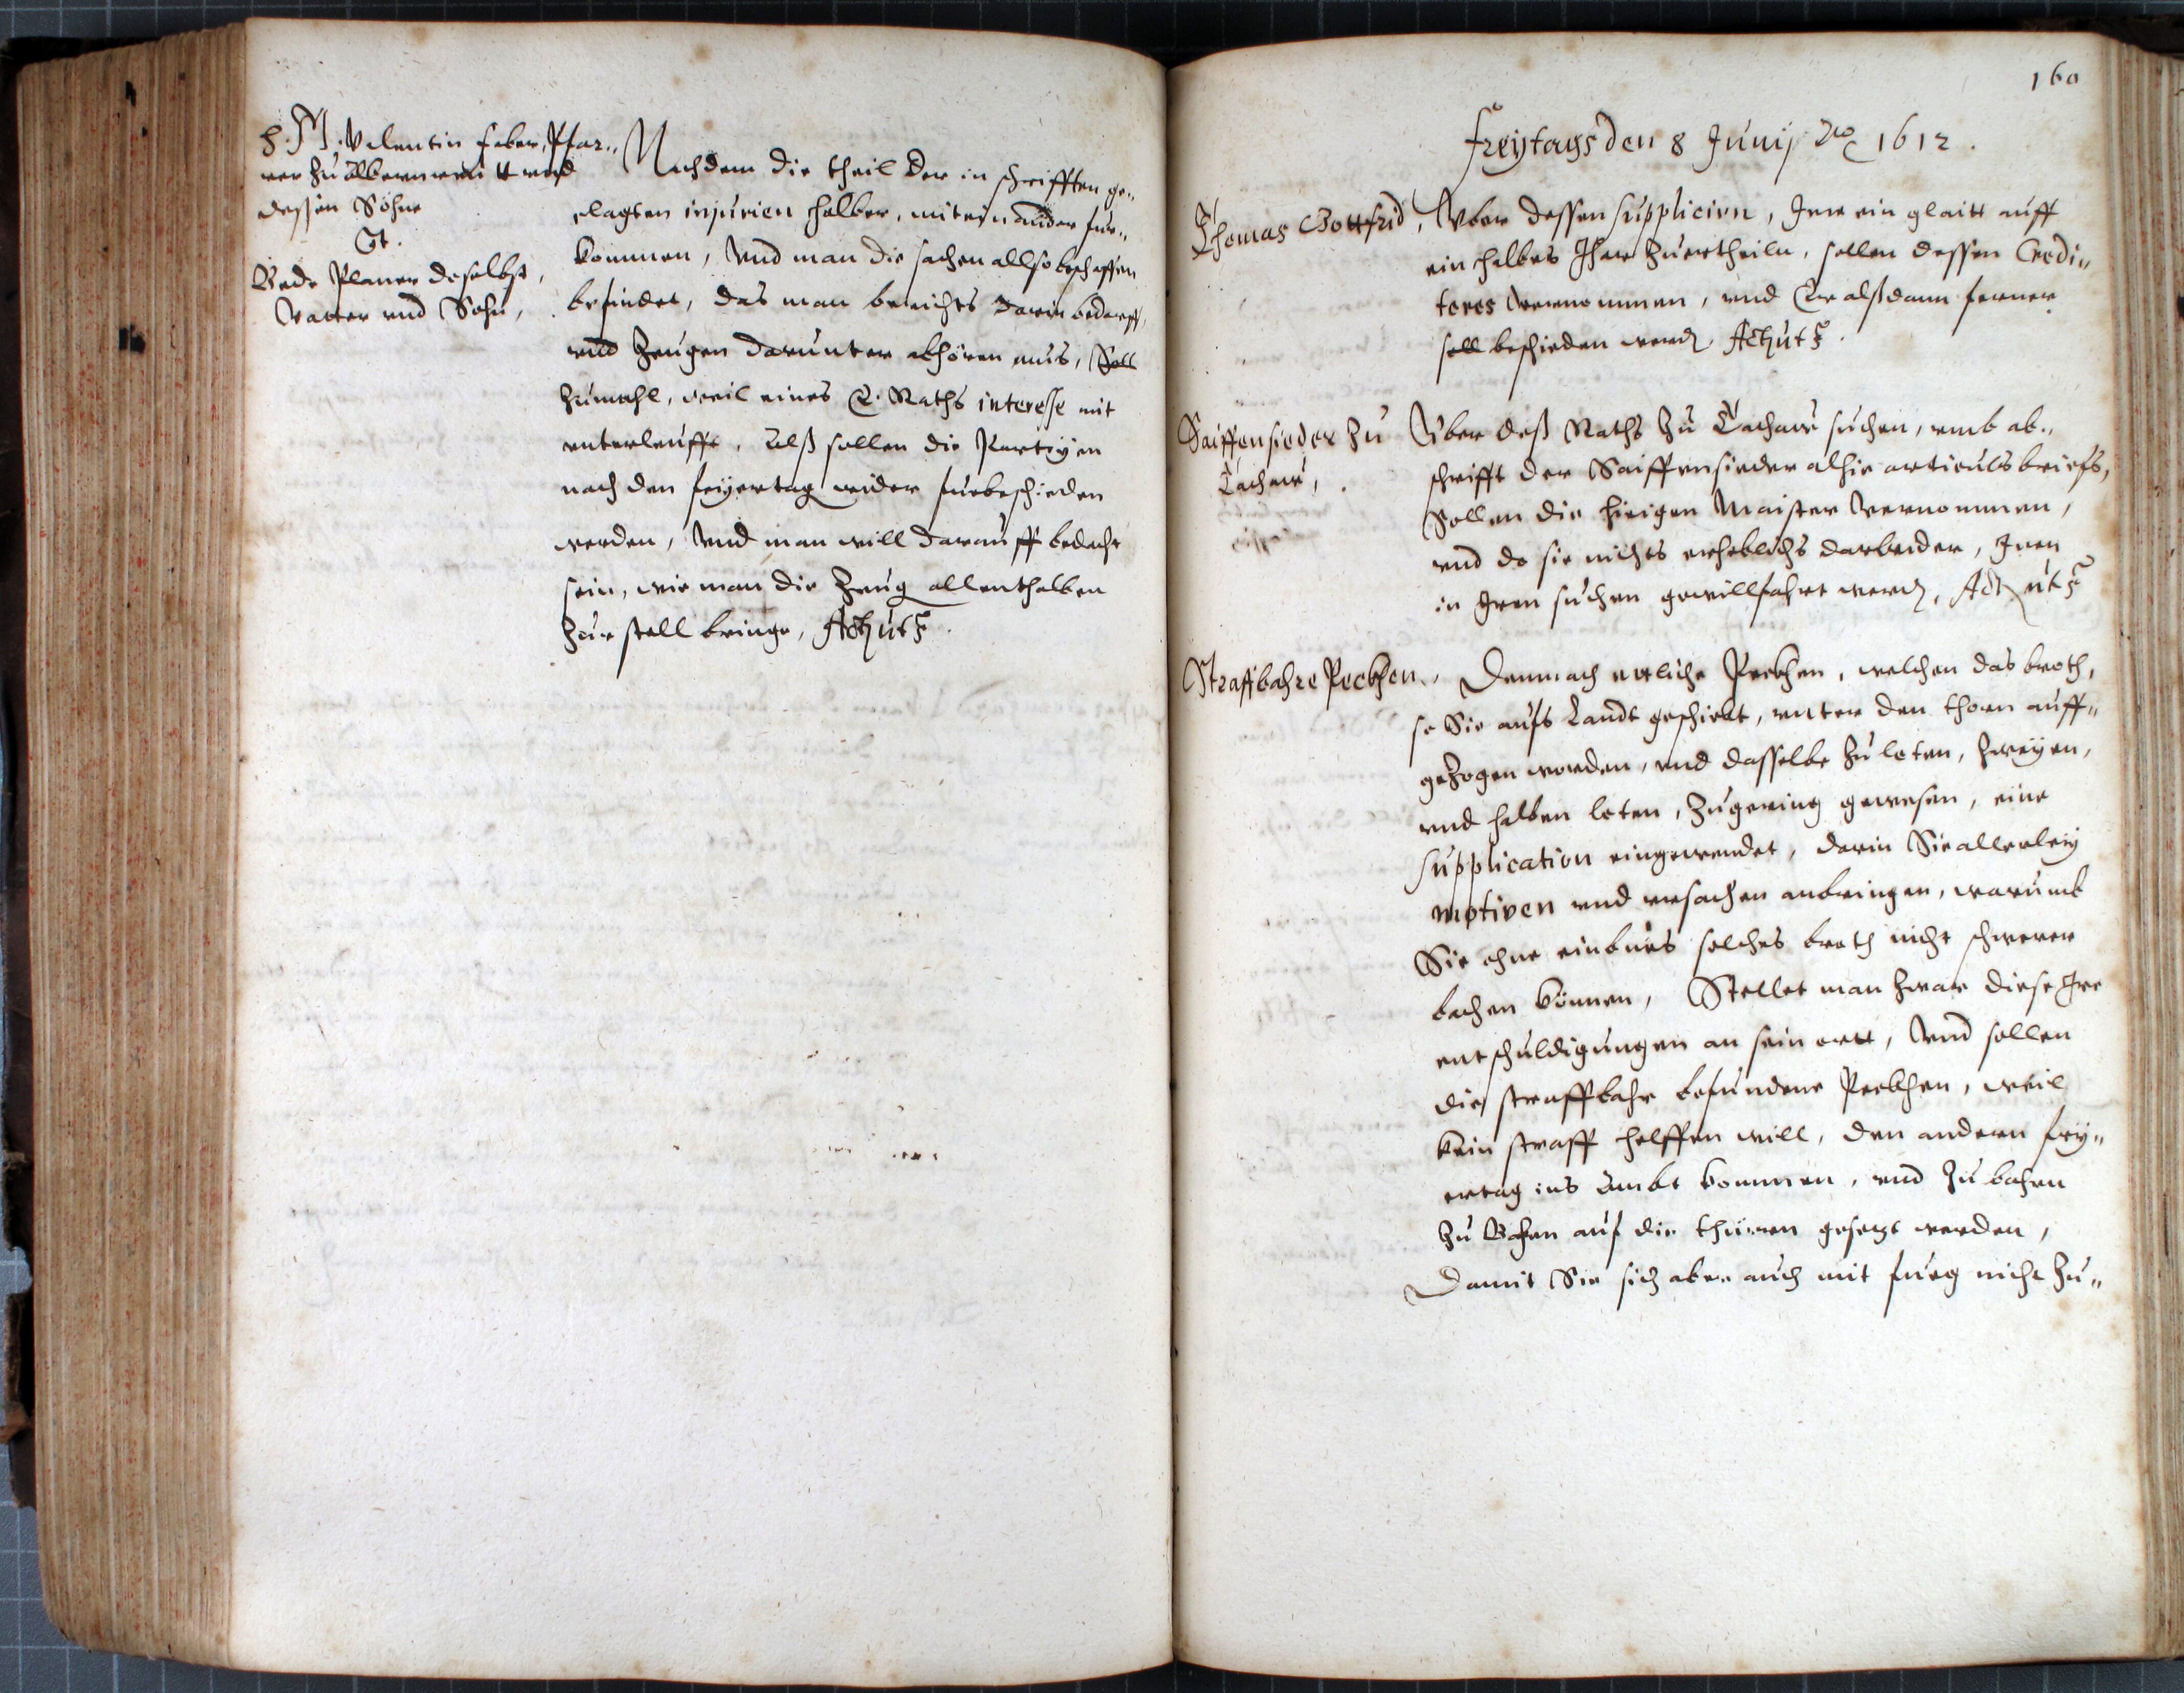 H. M. Valentin Faber, Pfar„
rer zu Albernreiitt vnd
dessen Söhne
Ct.
Bede Planer daselbst,
Vatter vnd Sohn,
Nachdem die theil der in schrifften ge„
clagten injurien halber, mit einander für„
kommen, Vnd man die sachen allso beschaffen
befindet, das man berichts darin bedarff,
vnd Zeugen darunter abhören mus, Soll
zumahl, weil eines E. Raths interesse mit
vnterleufft, Alß sollen die Partyen
nach den feyertag wider fürbeschieden
werden, Vnd man will darauff bedacht
sein, wie man die Zeug allenthalben
zur stell bringe, Act: ut s:
160
Freytags den 8 Junij Ao 1612.
Thomas Gottfrid,
Vber dessen supplicirn, Ime ein glaitt auff
ein halbes Jhar zuertheiln, sollen dessen Credi„
tores vernommen, vnd Er alßdann ferner
soll beschieden werd, Act: ut s:
Saiffensieder zu
Tachaw,
Vber deß Raths zu Tachaw suchen, vmb ab„
schrifft der Saiffensieder alhie articulsbriefs,
Sollen die hieigen Maister vernommen,
vnd do sie nichts erheblichs darwider, Jnen
in Jren suchen gewillfahrt werd, Act: ut s:
Straffbahre Peckhen.
Demnach ettliche Peckhen, welchen das broth,
so Sie aufs Landt geschickt, vnter den thorn auff„
gezogen worden, vnd dasselbe zu loten, zweyen,
vnd halben loten, zugering gewesen, eine
supplication eingewendet, darin Sie allerley
motiven vnd vrsachen anbringen, warumb
Sie ohne einbus solches broth nicht schwerer
bachen können, Stellet man zwar diese Jre
entschuldigungen an sein ortt, Vnd sollen
die straffbahr befundene Peckhen, weil
kein straff helffen will, den andern fey„
ertag ins Ambt kommen, vnd zu bahen
zu Bahen auf die thürren gesetzt werden,
Damit Sie sich aber auch mit fueg nicht zu„